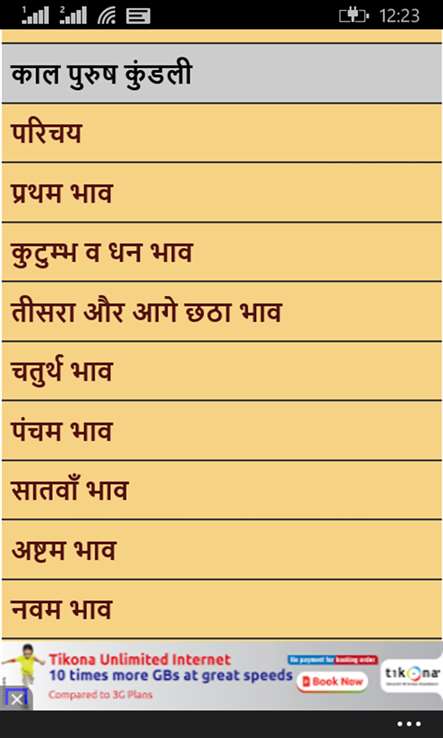 1 2 12:23
काल पुरुष कुंडली
परिचय
प्रथम भाव
कुटुम्भ व धन भाव
तीसरा और आगे छठा भाव
चतुर्थ भाव
पंचम भाव
सातवाँ भाव
अष्टम भाव
नवम भाव
Tikona Unlimited Internet
10 times more GBs at great speeds
Compared to 3G Plans
No payment for booking order
Book Now
tikona